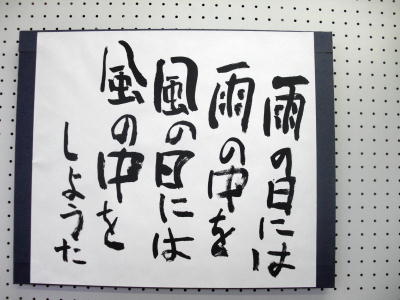 雨の日には
雨の中を
風の日には
風の中を
しようた